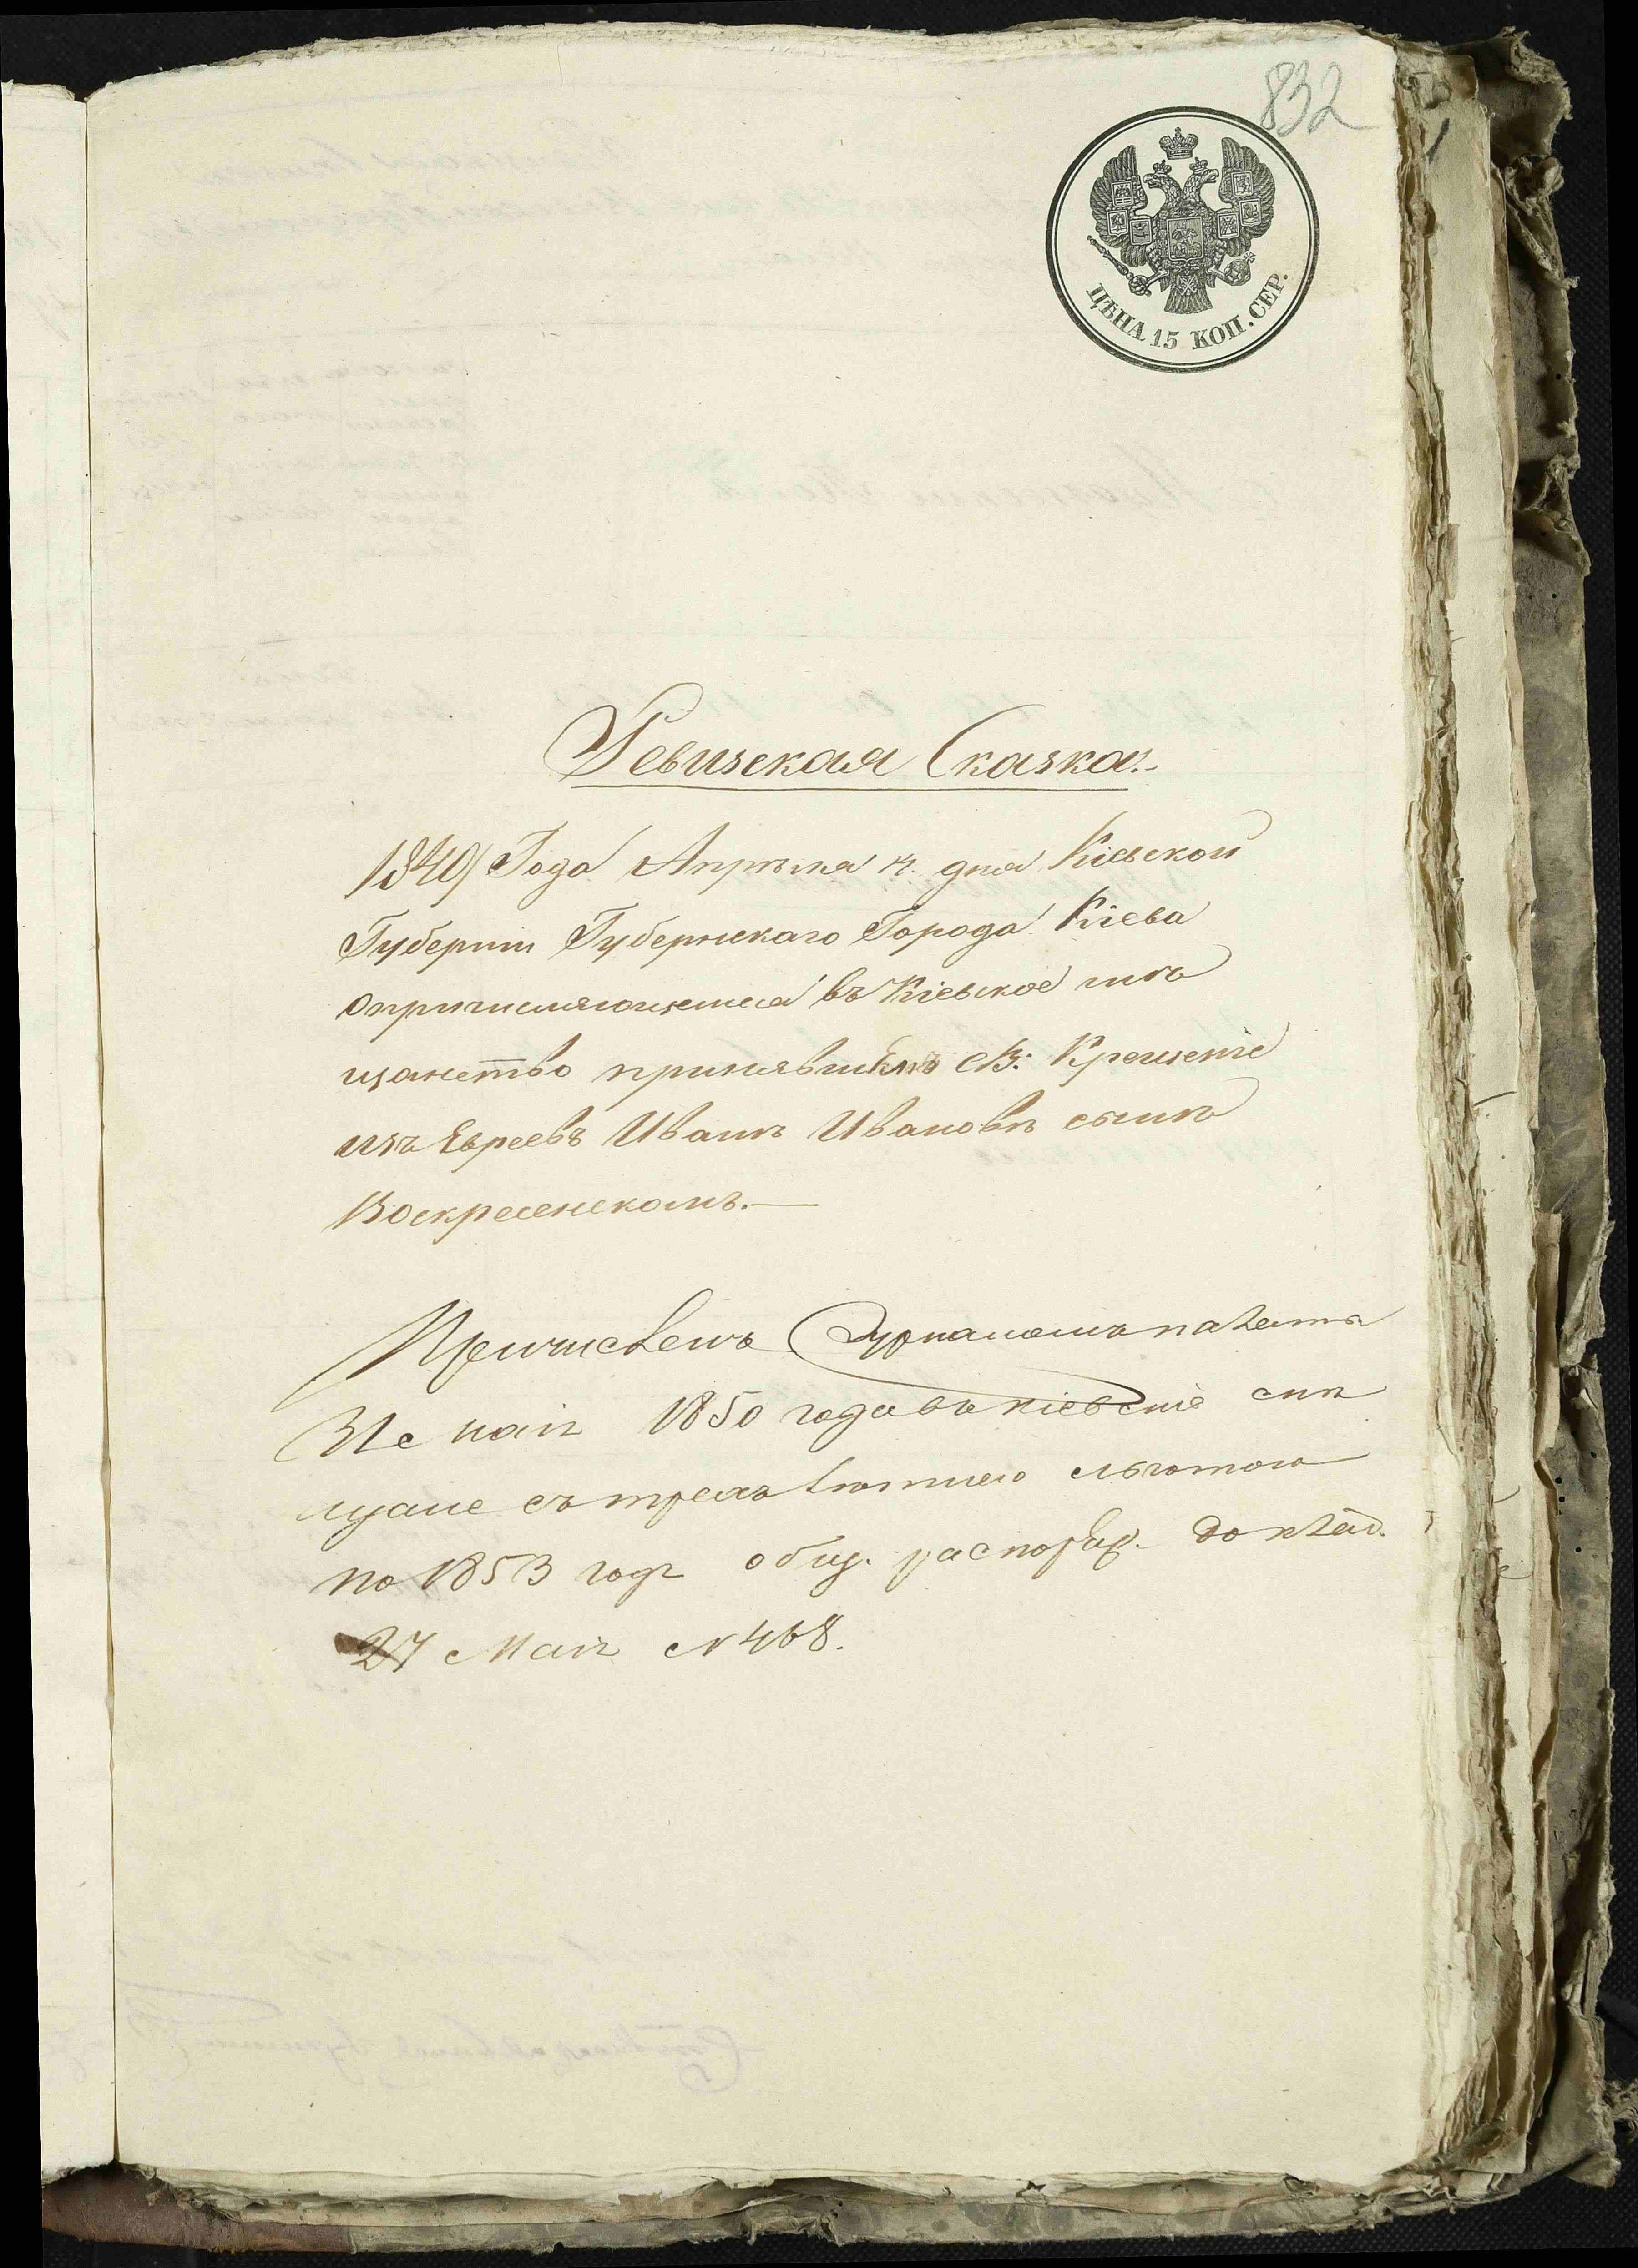 832
ЦѢНА 15 КОП. СЕР.
Ревизская Сказка.
1849 Года Апрѣля 4. дня Кіевской
Губерніи Губернскаго Города Кіева
о причисляющемся въ Кіевское мѣ
щанство принявшемъ Св: Крещеніе
изъ Евреевъ Иванѣ Ивановѣ сынѣ
Воскресенскомъ.—
Причисленъ Журналомъ палаты
31е мая 1850 года въ кіевскіе мѣ
щане съ трехъ лѣтнею льготою
по 1853 годъ общ. распоряд. докład.
27 Мая N 468.